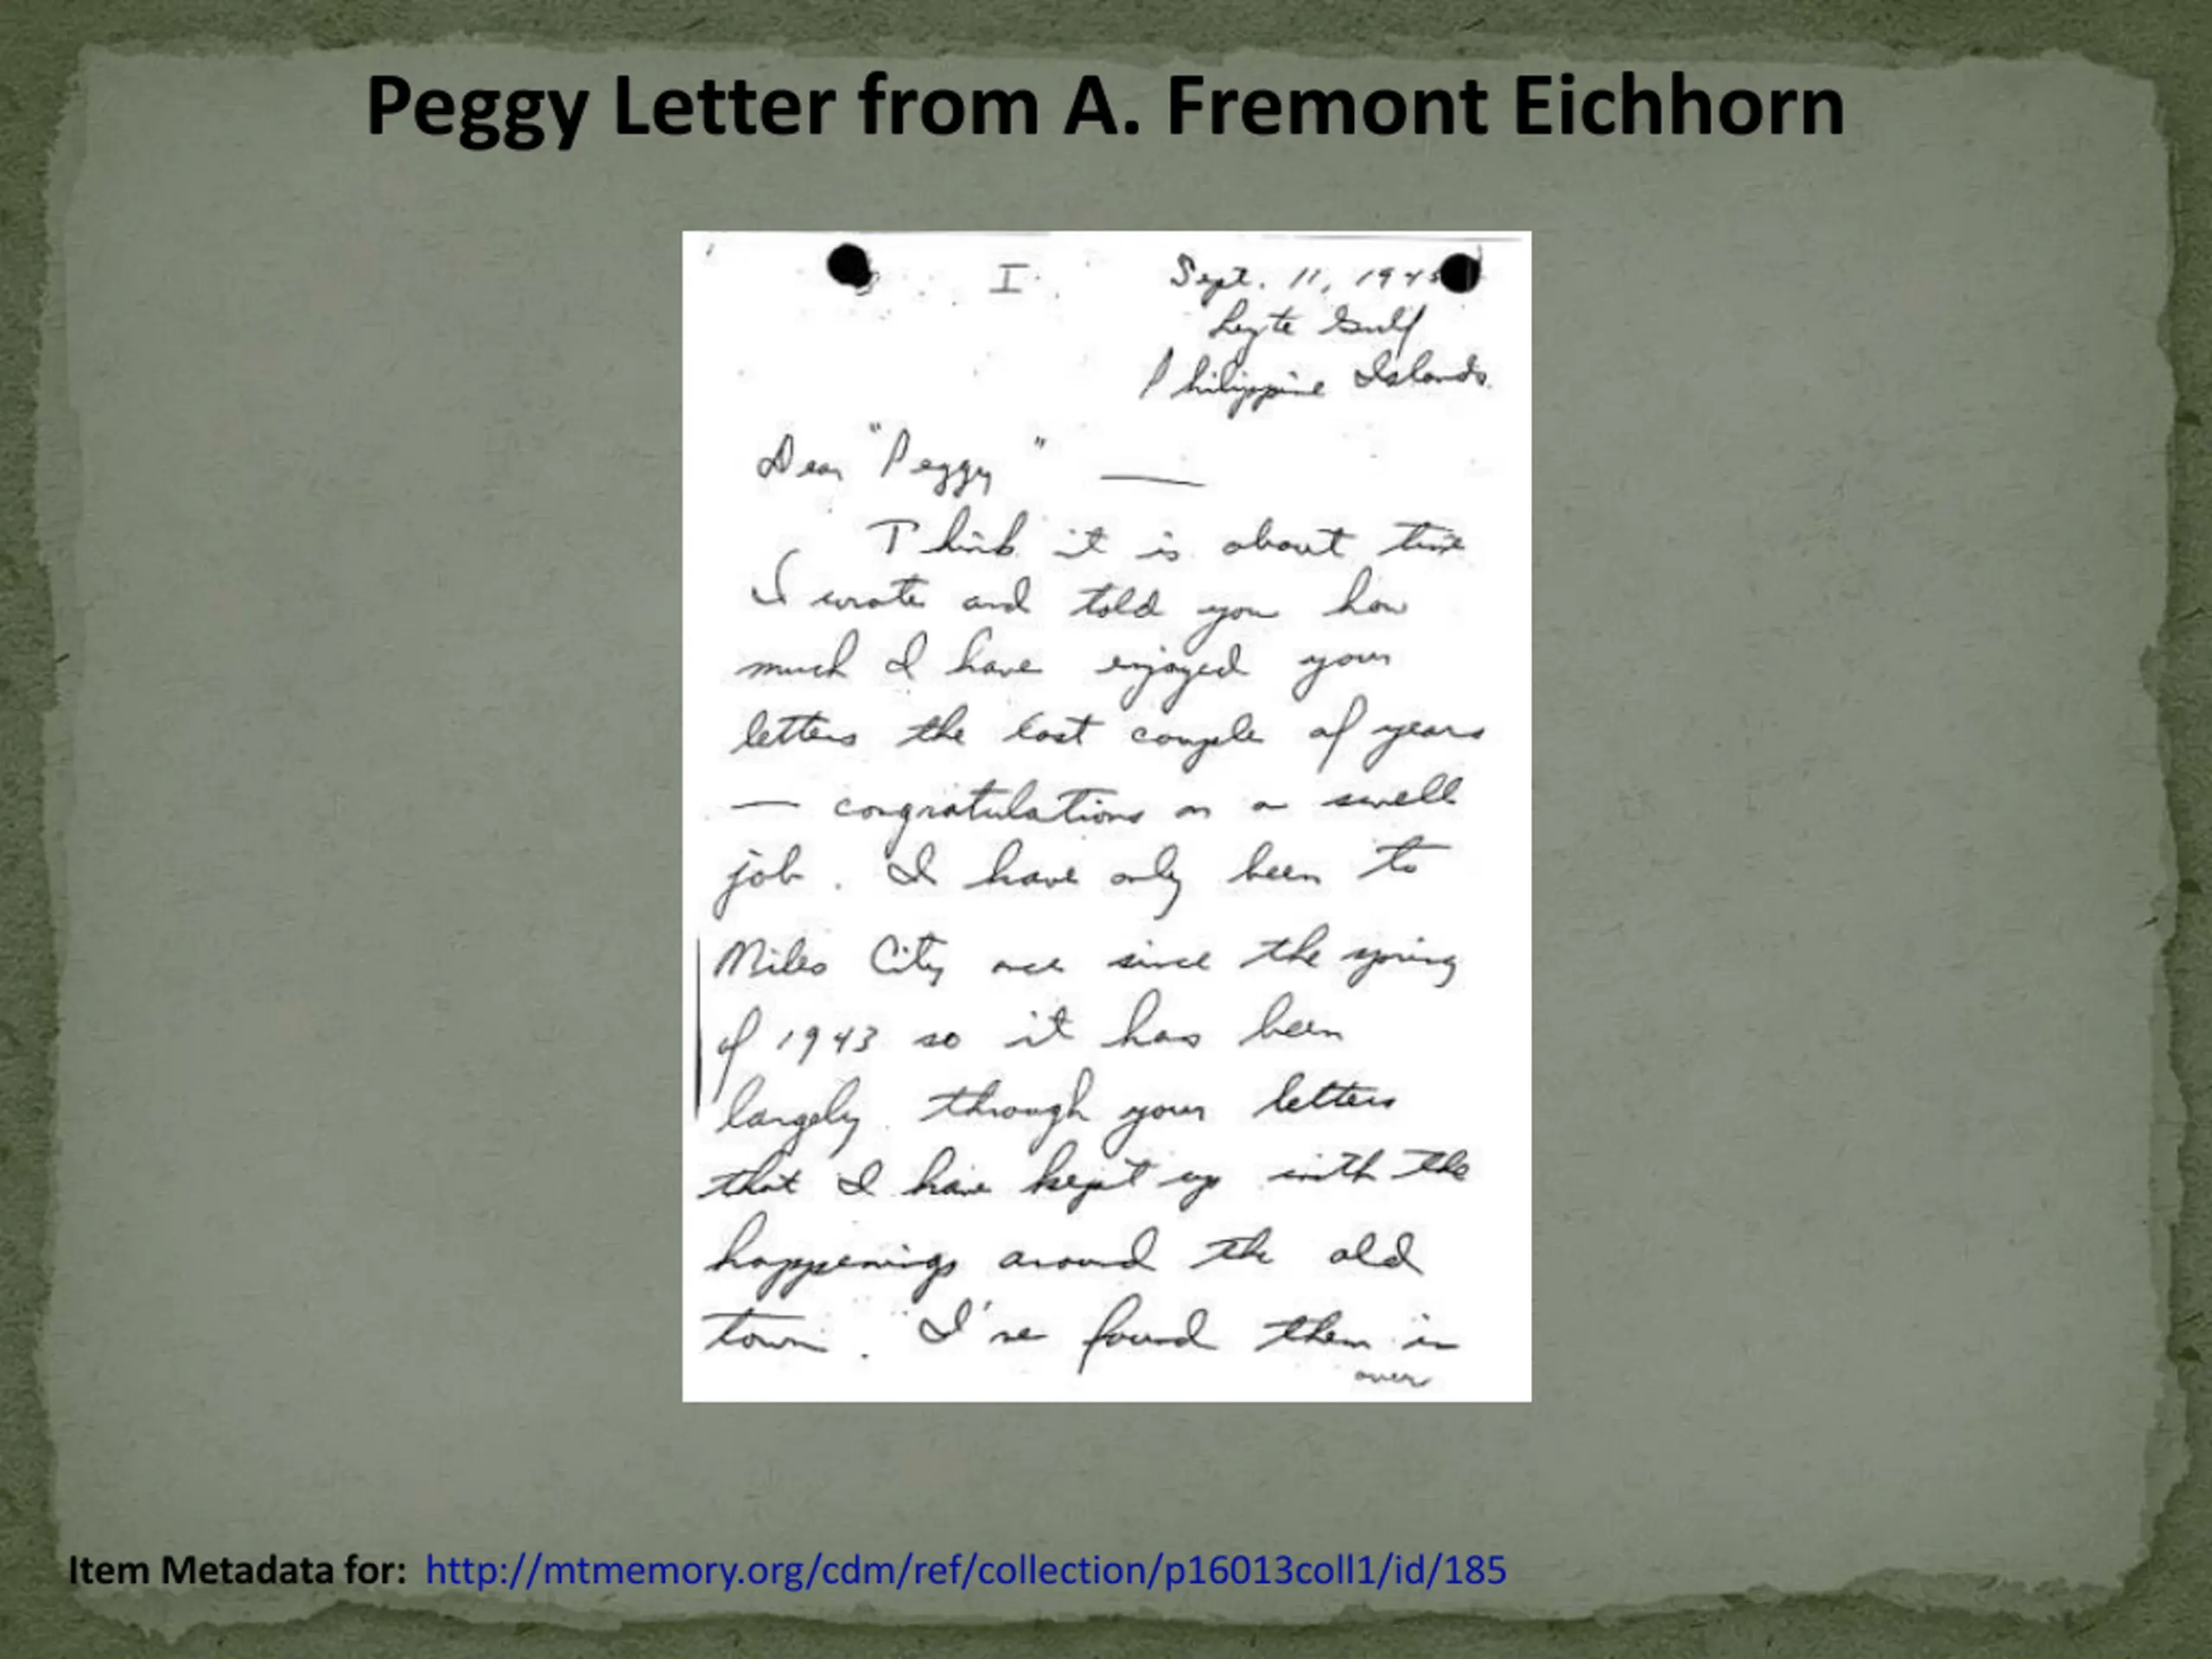 Peggy Letter from A. Fremont Eichhorn
I
Sept. 11, 1945
Leyte Gulf
Philippine Islands
Dear "Peggy" —
Think it is about time
I wrote and told you how
much I have enjoyed your
letters the last couple of years
— congratulations on a swell
job. I have only been to
Miles City once since the spring
of 1943 so it has been
largely through your letters
that I have kept up with the
happenings around the old
town. I've found them in
over
Item Metadata for: http://mtmemory.org/cdm/ref/collection/p16013coll1/id/185